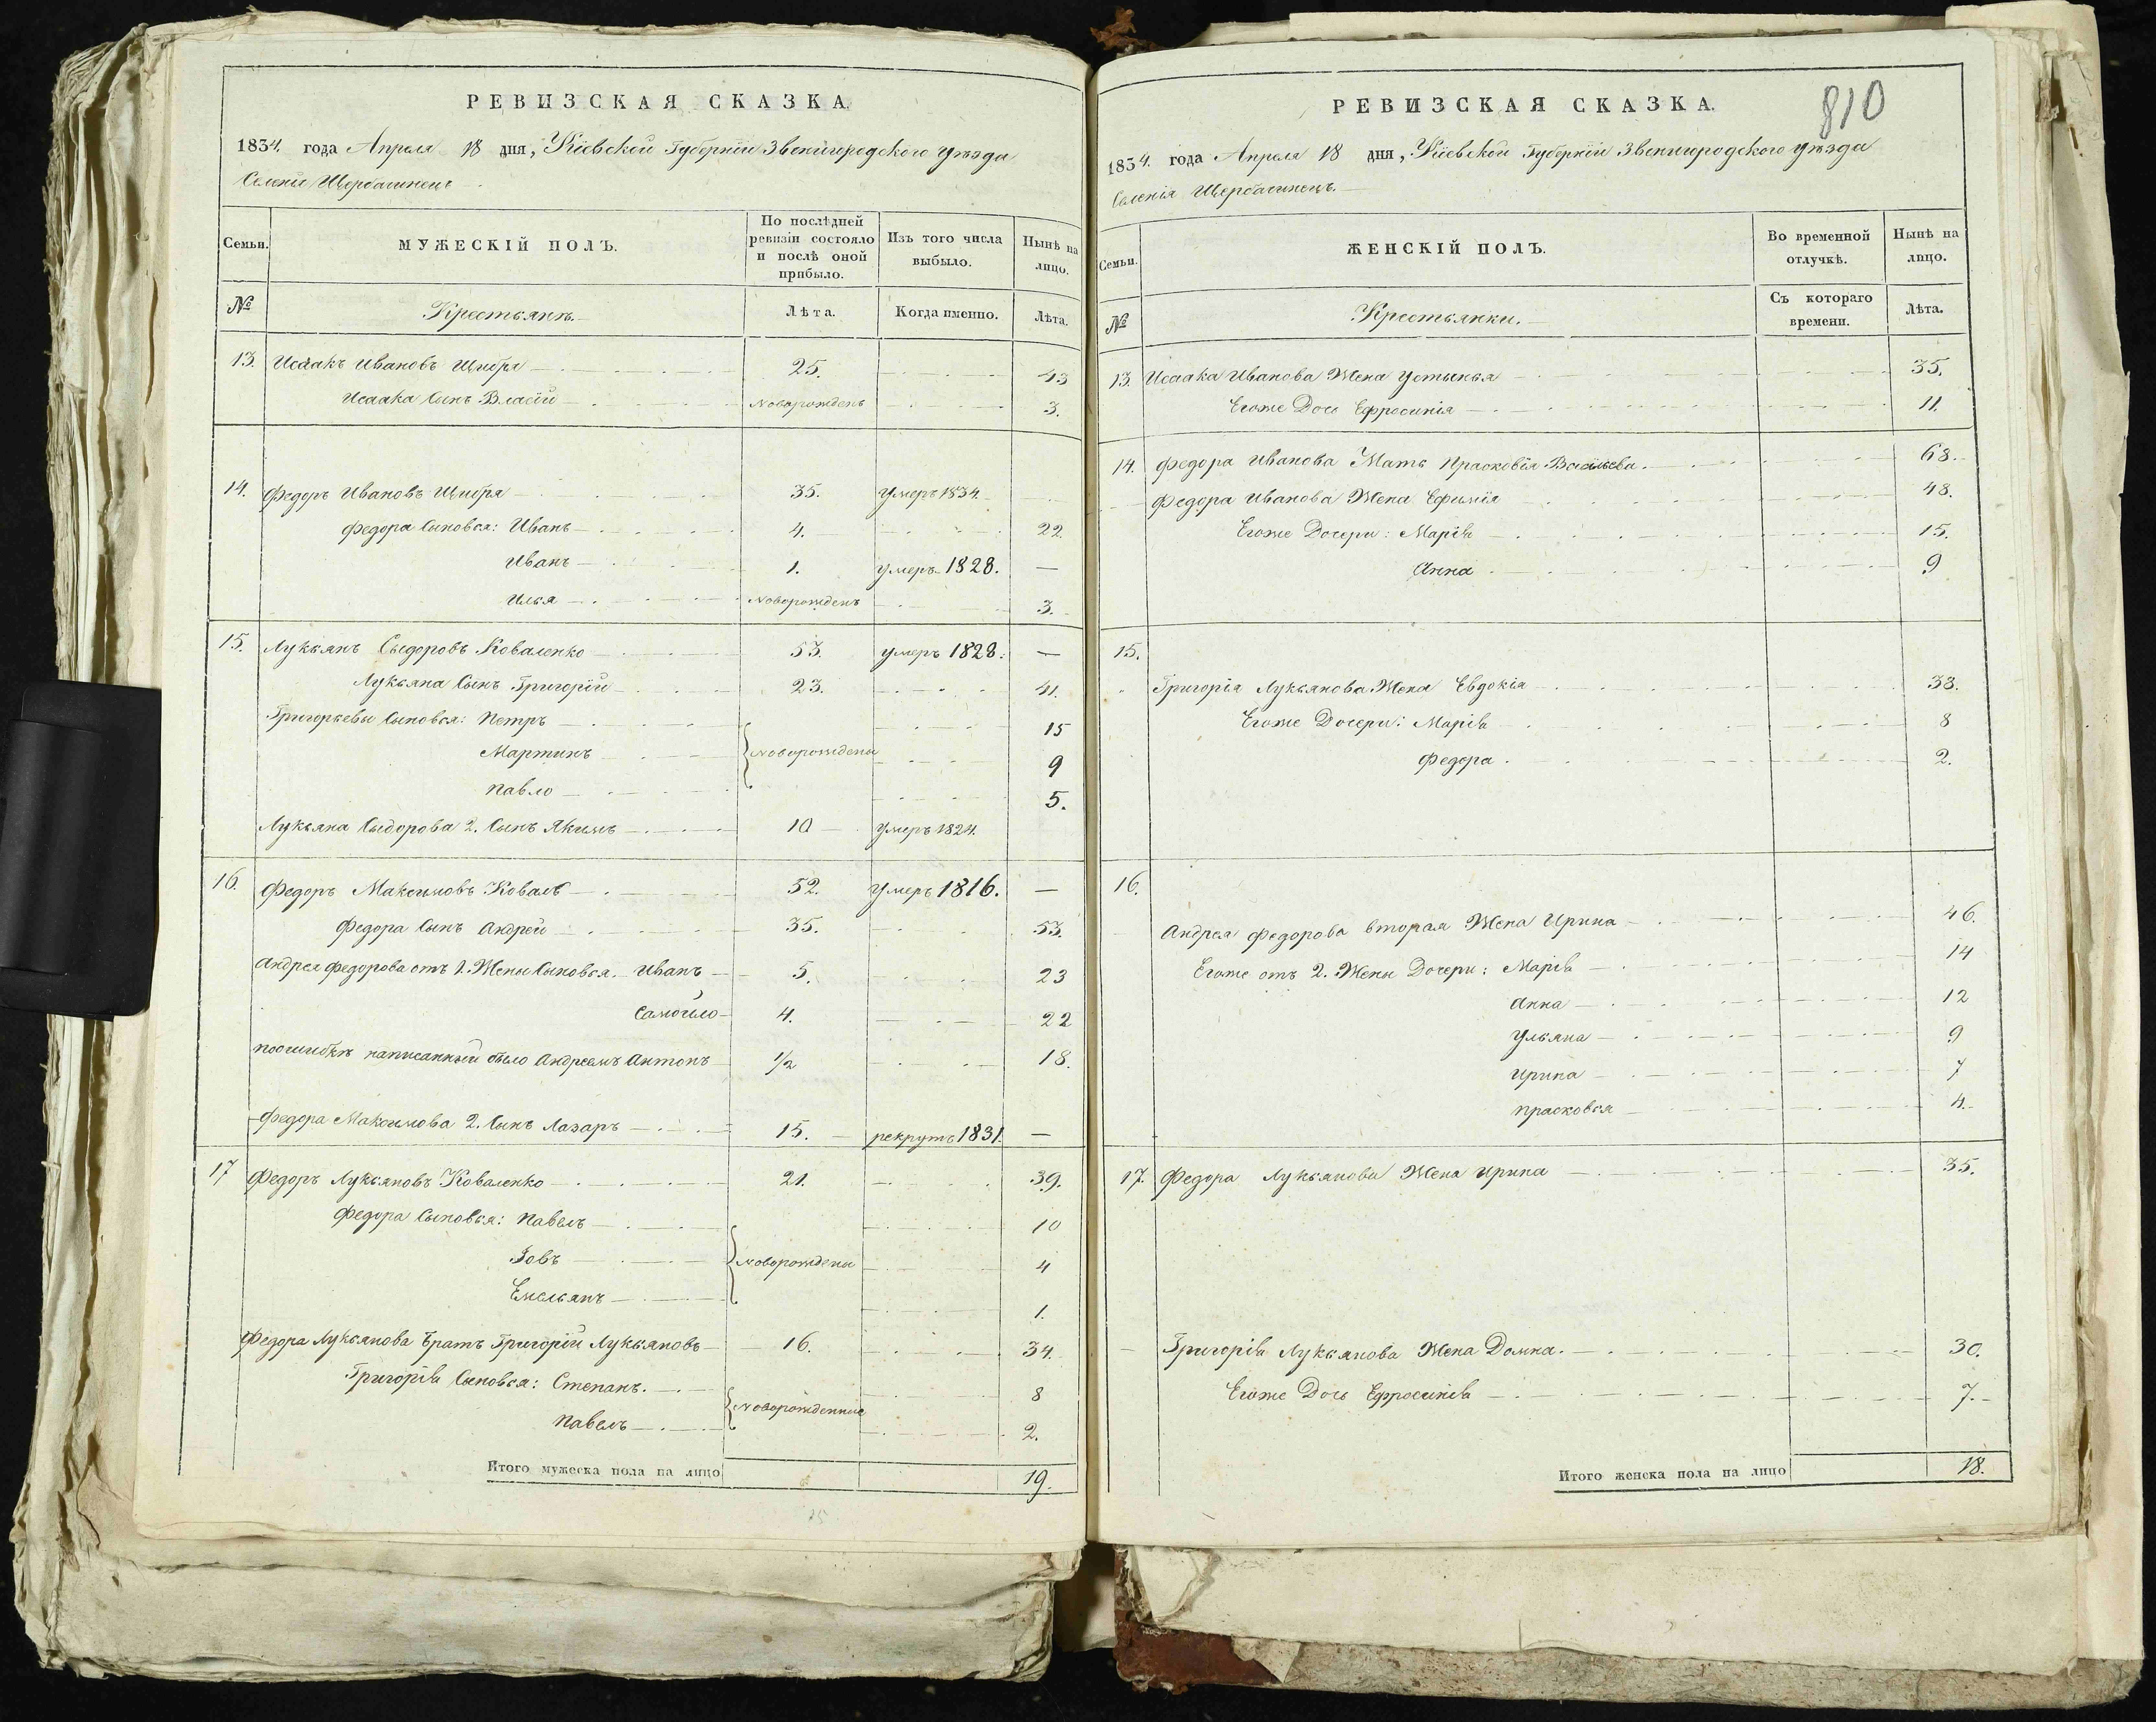 РЕВИЗСКАЯ СКАЗКА.
1834. года Апреля 18 дня, Кіевской Губерніи Звенигородского уѣзда
Селенія Щербашинець
Семьи.
МУЖЕСКІЙ ПОЛЪ.
По послѣдней ревизіи состояло и послѣ оной прибыло.
Изъ того числа выбыло.
Нынѣ на лицо.
№
Крестьянъ.
Лѣта.
Когда именно.
Лѣта.
13. Исаакъ Ивановъ 25. 43
Исаака Сынъ Власій Новорожденъ 3.
14. Федоръ Ивановъ 35. умеръ 1834
Федора Сыновья: Иванъ 4. 22.
Иванъ 1. умеръ 1828. —
Илья Новорожденъ 3.
15. Лукьянъ Сыдоровъ Коваленко 53. умеръ 1828. —
Лукьяна Сынъ Григорій 23. 41.
Григорьевы Сыновья: Петръ 15
Мартинъ Новорождены 9
Павло 5.
Лукьяна Сыдорова 2. Сынъ Якимъ 10 умеръ 1824.
16. Федоръ Максимовъ Коваль 52. умеръ 1816. —
Федора Сынъ Андрей 35. 53.
Андрея Федорова отъ 1. Жены Сыновья. Иванъ 5. 23
Самойло 4. 22
поошибкѣ написанный было Андреемъ Антонъ 1/2 18.
Федора Максимова 2. Сынъ Лазаръ 15. рекрутъ 1831. —
17 Федоръ Лукьяновъ Коваленко 21. 39.
Федора Сыновья: Павелъ 10
Іовъ Новорождены 4
Емельянъ 1.
Федора Лукьянова Братъ Григорій Лукьяновъ 16. 34.
Григорія Сыновья: Степанъ. 8
Новорожденные
Павелъ 2.
Итого мужеска пола на лицо 19.
810
РЕВИЗСКАЯ СКАЗКА.
1834. года Апреля 18 дня, Кіевской Губерніи Звенигородского уѣзда
Селенія Щербашинець.
Семьи.
ЖЕНСКІЙ ПОЛЪ.
Во временной отлучкѣ.
Нынѣ на лицо.
№
Крестьянки.
Съ котораго времени.
Лѣта.
13. Исаака Иванова Жена Устинья 35.
Егоже Дочь Ефросинія 11.
14. Федора Иванова Мать Прасковія Васильева. 68.
Федора Иванова Жена Ефимія 48.
Егоже Дочери: Марія 15.
Анна 9
15.
Григорія Лукьянова Жена Евдокія 38.
Егоже Дочери: Марія 8
Федора 2.
16.
Андрея Федорова вторая Жена Ирина 46.
Егоже отъ 2. Жены Дочери: Марія 14
Анна 12
Ульяна 9
Ирина 7
Прасковья 4.
17. Федора Лукьянова Жена Ирина 35.
Григорія Лукьянова Жена Домна. 30.
Егоже Дочь Ефросинія 7.
Итого женска пола на лицо 18.